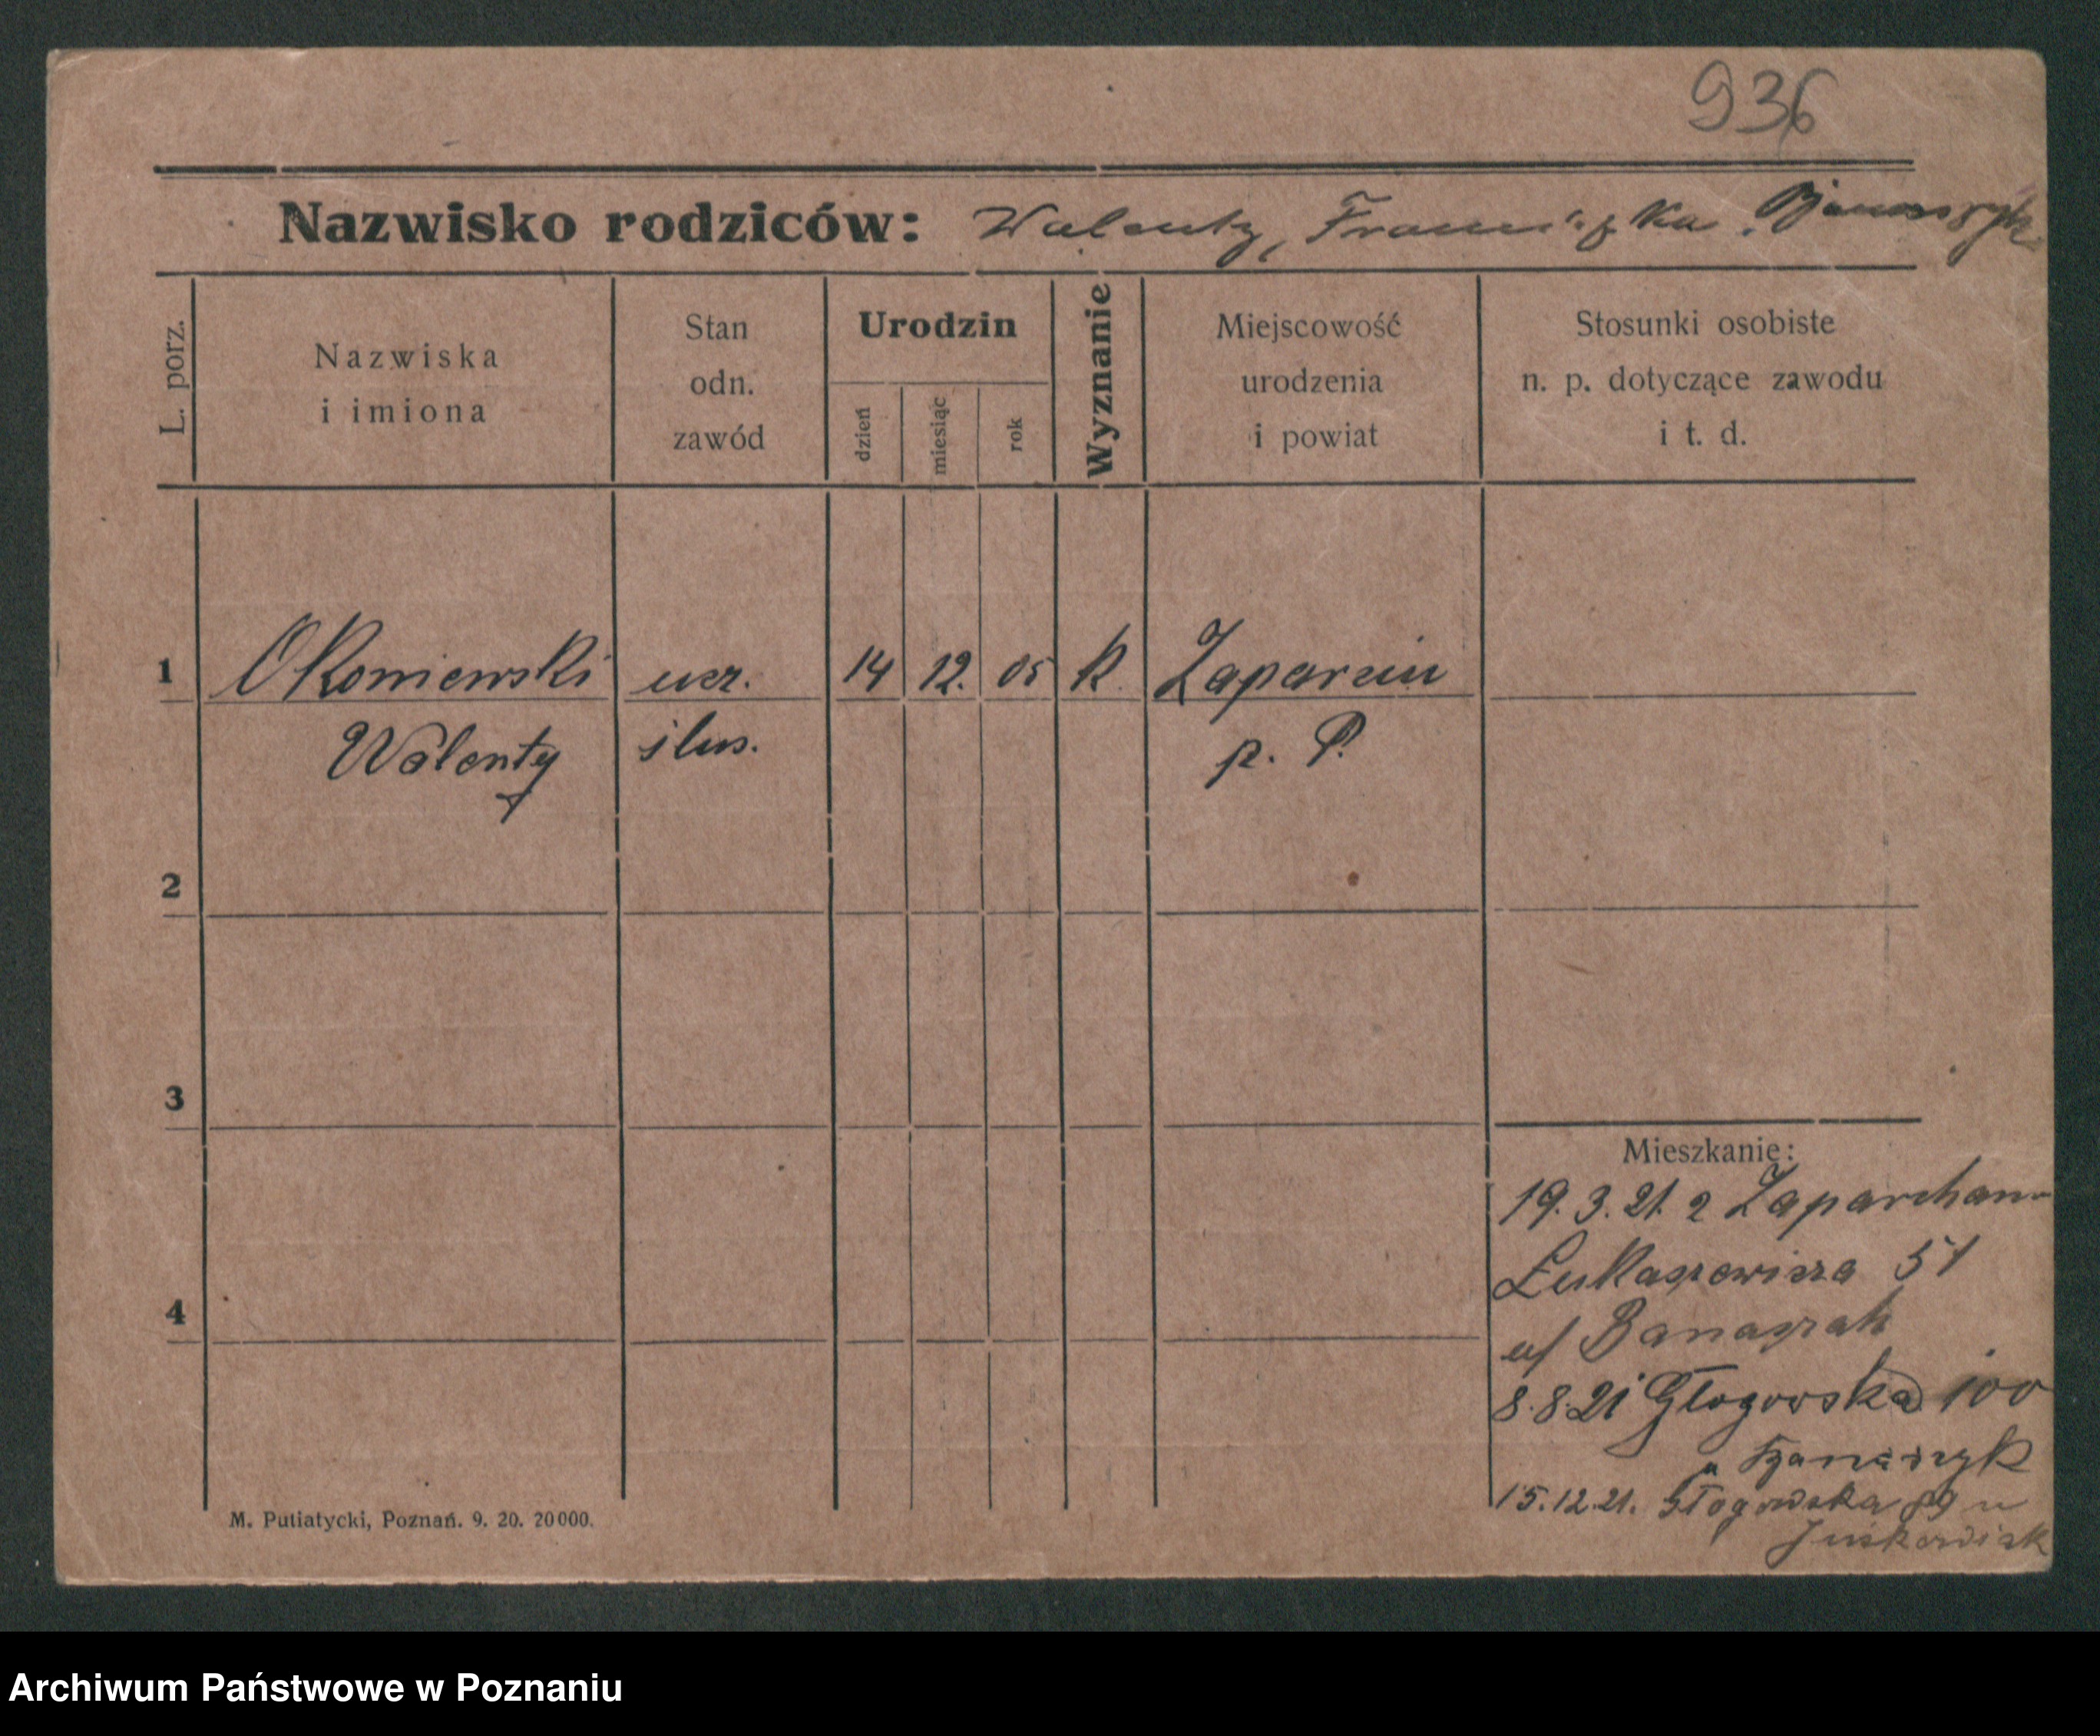 936
Nazwisko rodziców: Walenty, Franciszka
L. porz.
Nazwiska
i imiona
Stan
odn.
zawód
Urodzin
dzień
miesiąc
rok
Wyznanie
Miejscowość
urodzenia
i powiat
Stosunki osobiste
n. p. dotyczące zawodu
i t. d.
1 Okoniewski ucz. 14 12. 05 k.
Walenty ślus. p. P.
2
3
4
Mieszkanie:
19. 3. 21. z
Łukaszewicza 51
u/ Banaszak
8.8.21 Głogowska 100
15.12.21. Głogowska 89 u
Juskowiak
M. Putiatycki, Poznań. 9. 20. 20000.
Archiwum Państwowe w Poznaniu